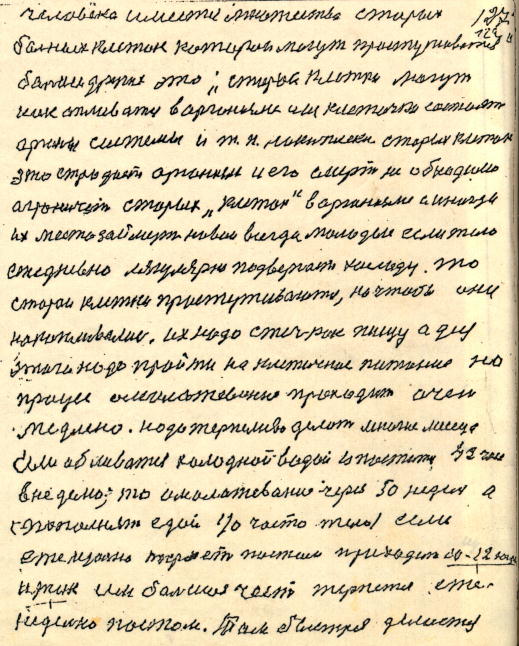 человека имеете множества старых
больных клеток которые могут простуживатся
больше других это; старые клетки могут
накапливатя в организме или клеточки состоят
органы системы и т.п. накоплески старых клеток
это страдает организм и его смерт не обходимо
ограничет старых „клеток" в организме и иногда
их место займет новые всегда молодые если тело
ежедневно регулярно подвергат холоду. то
старые клетки простуживаются, но чтобы они
накапливалис. их надо стеч-рок пищу а для
этого надо пройти на клеточное питание но
процес омоложевание проходит очен
медлено. надо терпеливо делат многие месеца
если обливатя холодной водой и постит 42 часа
в неделю; то омолаживание через 50 недел а
пополнят едой 1/10 часто тела) если
ежемесячно теряет постом приходит 10-12 кило
или болшая част теряется еже-
неделно постом. Там быстрея делается